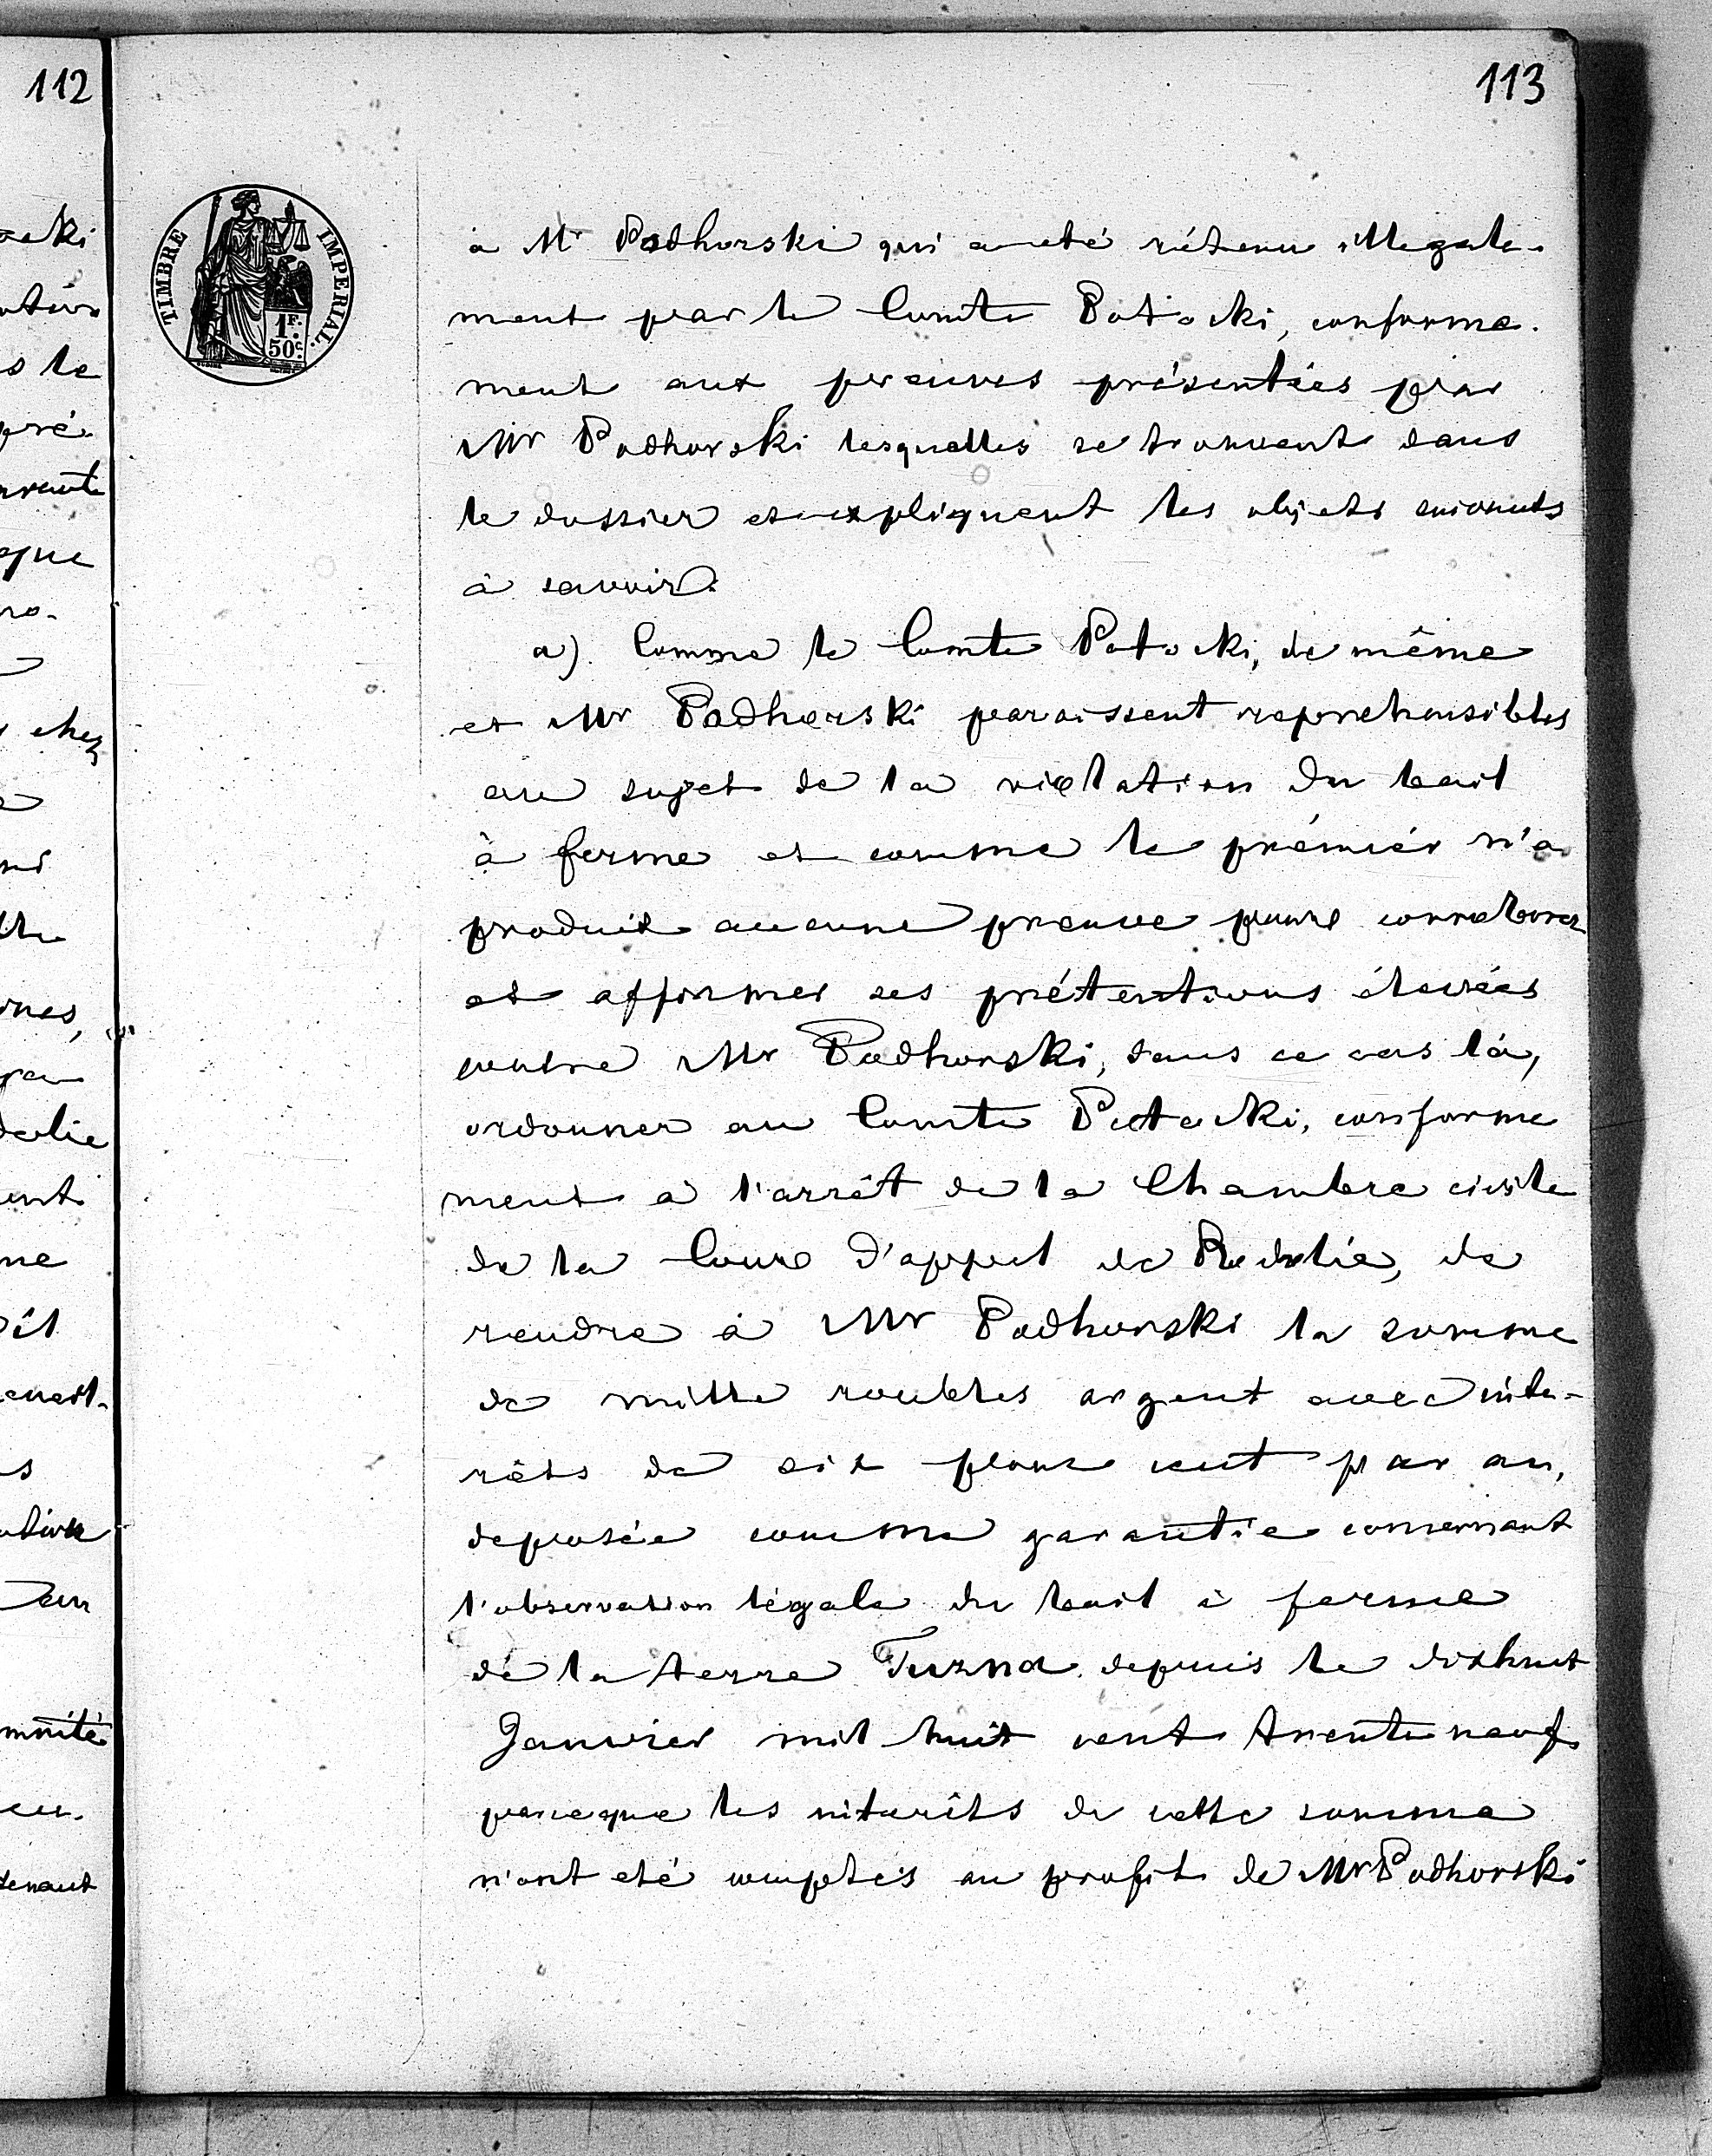 112
113
TIMBRE IMPERIAL.
1F.
50c.
à Mr Podhorski qui a été rétenu illegale-
ment par le Comte Potocki, conforme-
ment aux preuves présentées par
Mr Podhorski lesquelles se trouvent dans
le dossier et expliquent les objets suivants
à savoir.
a). Comme le Comte Potocki, de même
et Mr Podhorski paraissent reprehensibles
au sujet de la violation du bail
à ferme et comme le prémiér n'a
produit aucune preuve pour corroborer
et affirmer ses prétentions élevées
contre Mr Podhorski, dans ce cas là,
ordonner au Comte Potocki, conforme
ment à l'arrêt de la Chambre civile
de la Cour d'appel de Podolie, de
rendre à Mr Podhorski la somme
de mille roubles argent avec inte-
rêts de six pour cent par an,
deposée comme garantie concernant
l'observation légale du bail à ferme
de la terre Turzna depuis le dixhuit
Janvier mil huit cent trente neuf
parceque les intérêts de cette somme
n'ont eté comptés au profit de Mr Podhorski
ocki
s le
pré-
que
chez
nes,
dolie
ent
me